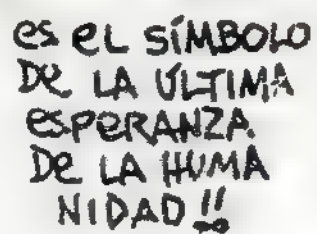 es eL SÍMBOLO
De LA ÚLTIMA
esPeRANZA
De LA HUMA
NIDAD!!